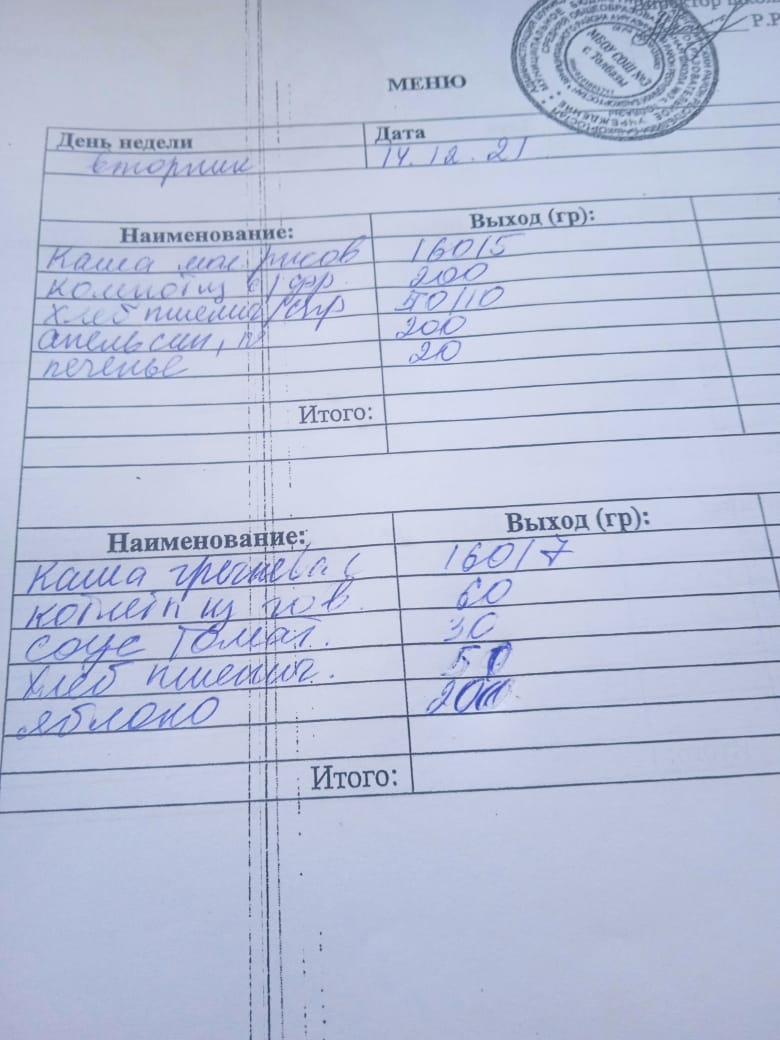 Р.Р
МБОУ СОШ №2
с. Толбазы
МЕНЮ
День недели Дата
вторник 14.12.21
Наименование: Выход (гр):
Каша мол рисов 160/5
компот из с/фр 200
хлеб пшенич/сыр 50/10
апельсин, 200
печенье 20
Итого:
Наименование: Выход (гр):
Каша гречневая 160/7
котлеты из гов. 60
соус томат. 30
хлеб пшенич. 50
яблоко 200
Итого: